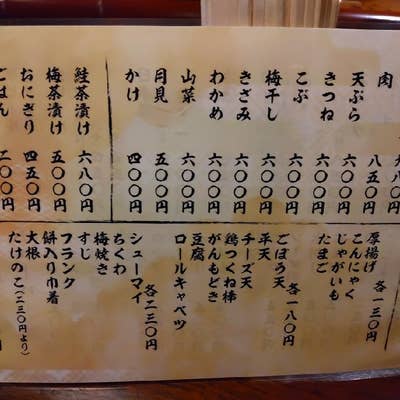 肉 八五〇円
天ぷら 六〇〇円
きつね 六〇〇円
こぶ 六〇〇円
梅干し 六〇〇円
きざみ 六〇〇円
わかめ 六〇〇円
山菜 六〇〇円
月見 五〇〇円
かけ 四〇〇円
鮭茶漬け 六八〇円
梅茶漬け 五〇〇円
おにぎり 四五〇円
ごはん 二〇〇円
各一三〇円
厚揚げ
こんにゃく
じゃがいも
たまご
各一八〇円
ごぼう天
平天
チーズ天
鶏つくね棒
がんもどき
豆腐
ロールキャベツ
各二三〇円
シューマイ
ちくわ
梅焼き
すじ
フランク
餅入り巾着
大根
たけのこ(二三〇円より)